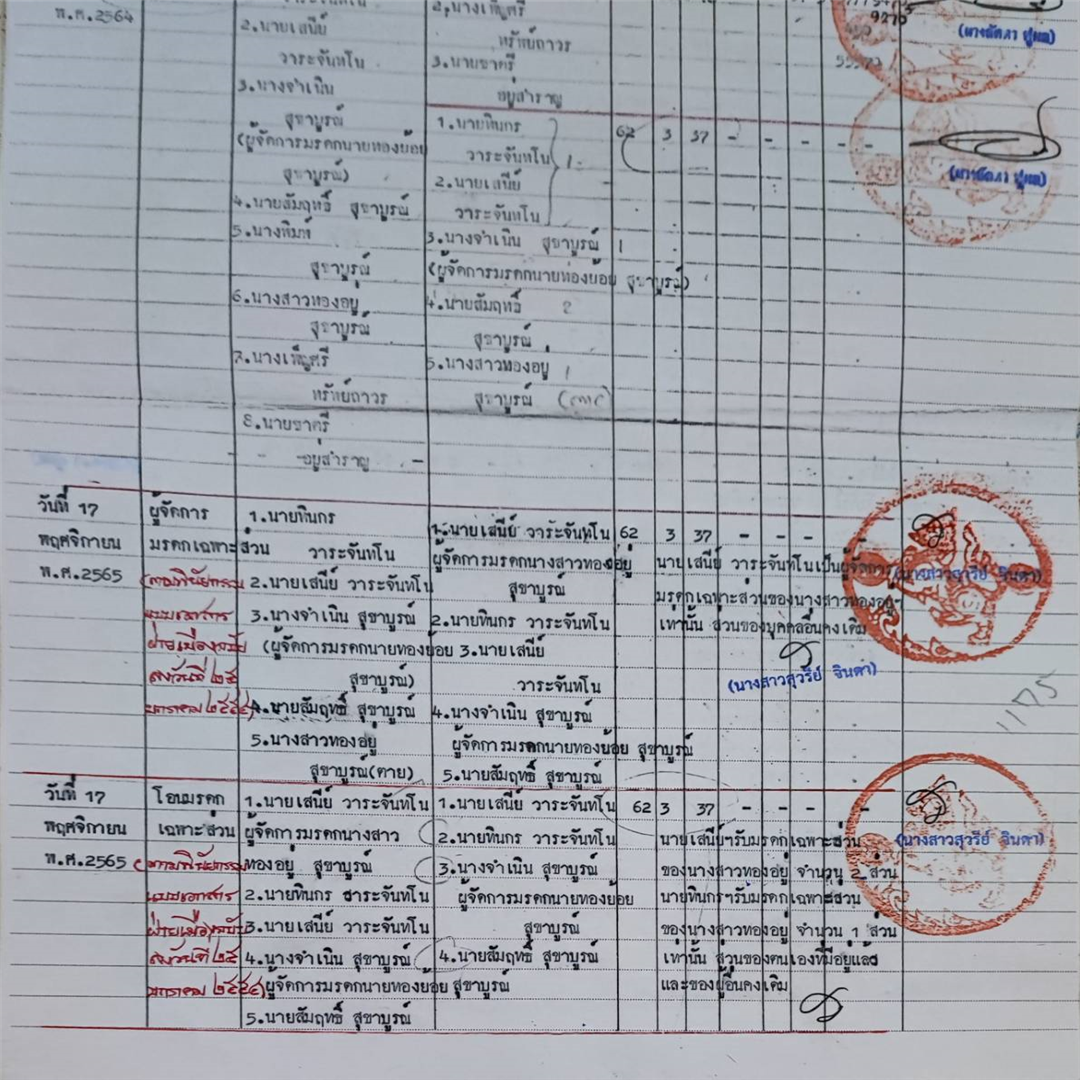 พ.ศ.2564
2.นายเสนีย์
วาระจันทโน
3.นางจำเนิน
สุขาบูรณ์
(ผู้จัดการมรดกนายทองย้อย
สุขาบูรณ์)
4.นายสัมฤทธิ์ สุขาบูรณ์
5.นางพิมพ์
สุขาบูรณ์
6.นางสาวทองอยู่
สุขาบูรณ์
7.นางเพ็ญศรี
ทรัพย์ถาวร
8.นายชาตรี
อยู่สำราญ
2.นางเพ็ญศรี
ทรัพย์ถาวร
3.นายชาตรี
อยู่สำราญ
1.นายทินกร
วาระจันทโน 1
2.นายเสนีย์
วาระจันทโน
3.นางจำเนิน สุขาบูรณ์ 1
(ผู้จัดการมรดกนายทองย้อย สุขาบูรณ์)
4.นายสัมฤทธิ์ 2
สุขาบูรณ์
5.นางสาวทองอยู่ 1
สุขาบูรณ์
62 3 37 - - - - -
วันที่ 17
พฤศจิกายน
พ.ศ.2565
ผู้จัดการ
มรดกเฉพาะส่วน
(ตามพินัยกรรม
แบบเอกสาร
ฝ่ายเมืองฉบับ
ลงวันที่ ๒๕
มกราคม ๒๕๕๔)
1.นายทินกร
วาระจันทโน
2.นายเสนีย์ วาระจันทโน
3.นางจำเนิน สุขาบูรณ์
(ผู้จัดการมรดกนายทองย้อย
สุขาบูรณ์)
4.นายสัมฤทธิ์ สุขาบูรณ์
5.นางสาวทองอยู่
สุขาบูรณ์(ตาย)
1.นายเสนีย์ วาระจันทโน
ผู้จัดการมรดกนางสาวทองอยู่
สุขาบูรณ์
2.นายทินกร วาระจันทโน
3.นายเสนีย์
วาระจันทโน
4.นางจำเนิน สุขาบูรณ์
ผู้จัดการมรดกนายทองย้อย สุขาบูรณ์
5.นายสัมฤทธิ์ สุขาบูรณ์
62 3 37 - - -
นายเสนีย์ วาระจันทโนเป็นผู้จัดการ
มรดกเฉพาะส่วนของนางสาวทองอยู่
เท่านั้น ส่วนของบุคคลอื่นคงเดิม
(นางสาวสุวรีย์ จินดา)
(นางสาวสุวรีย์ จินดา)
1175
วันที่ 17
พฤศจิกายน
พ.ศ.2565
โอนมรดก
เฉพาะส่วน
(ตามพินัยกรรม
แบบเอกสาร
ฝ่ายเมืองฉบับ
ลงวันที่ ๒๕
มกราคม ๒๕๕๔)
1.นายเสนีย์ วาระจันทโน
ผู้จัดการมรดกนางสาว
ทองอยู่ สุขาบูรณ์
2.นายทินกร วาระจันทโน
3.นายเสนีย์ วาระจันทโน
4.นางจำเนิน สุขาบูรณ์
ผู้จัดการมรดกนายทองย้อย สุขาบูรณ์
5.นายสัมฤทธิ์ สุขาบูรณ์
1.นายเสนีย์ วาระจันทโน
2.นายทินกร วาระจันทโน
3.นางจำเนิน สุขาบูรณ์
ผู้จัดการมรดกนายทองย้อย
สุขาบูรณ์
4.นายสัมฤทธิ์ สุขาบูรณ์
62 3 37 - - - - -
นายเสนีย์ฯรับมรดกเฉพาะส่วน
ของนางสาวทองอยู่ จำนวน 2 ส่วน
นายทินกรฯรับมรดกเฉพาะส่วน
ของนางสาวทองอยู่ จำนวน 1 ส่วน
เท่านั้น ส่วนของตนเองที่มีอยู่แล้ว
และของผู้อื่นคงเดิม
(นางสาวสุวรีย์ จินดา)